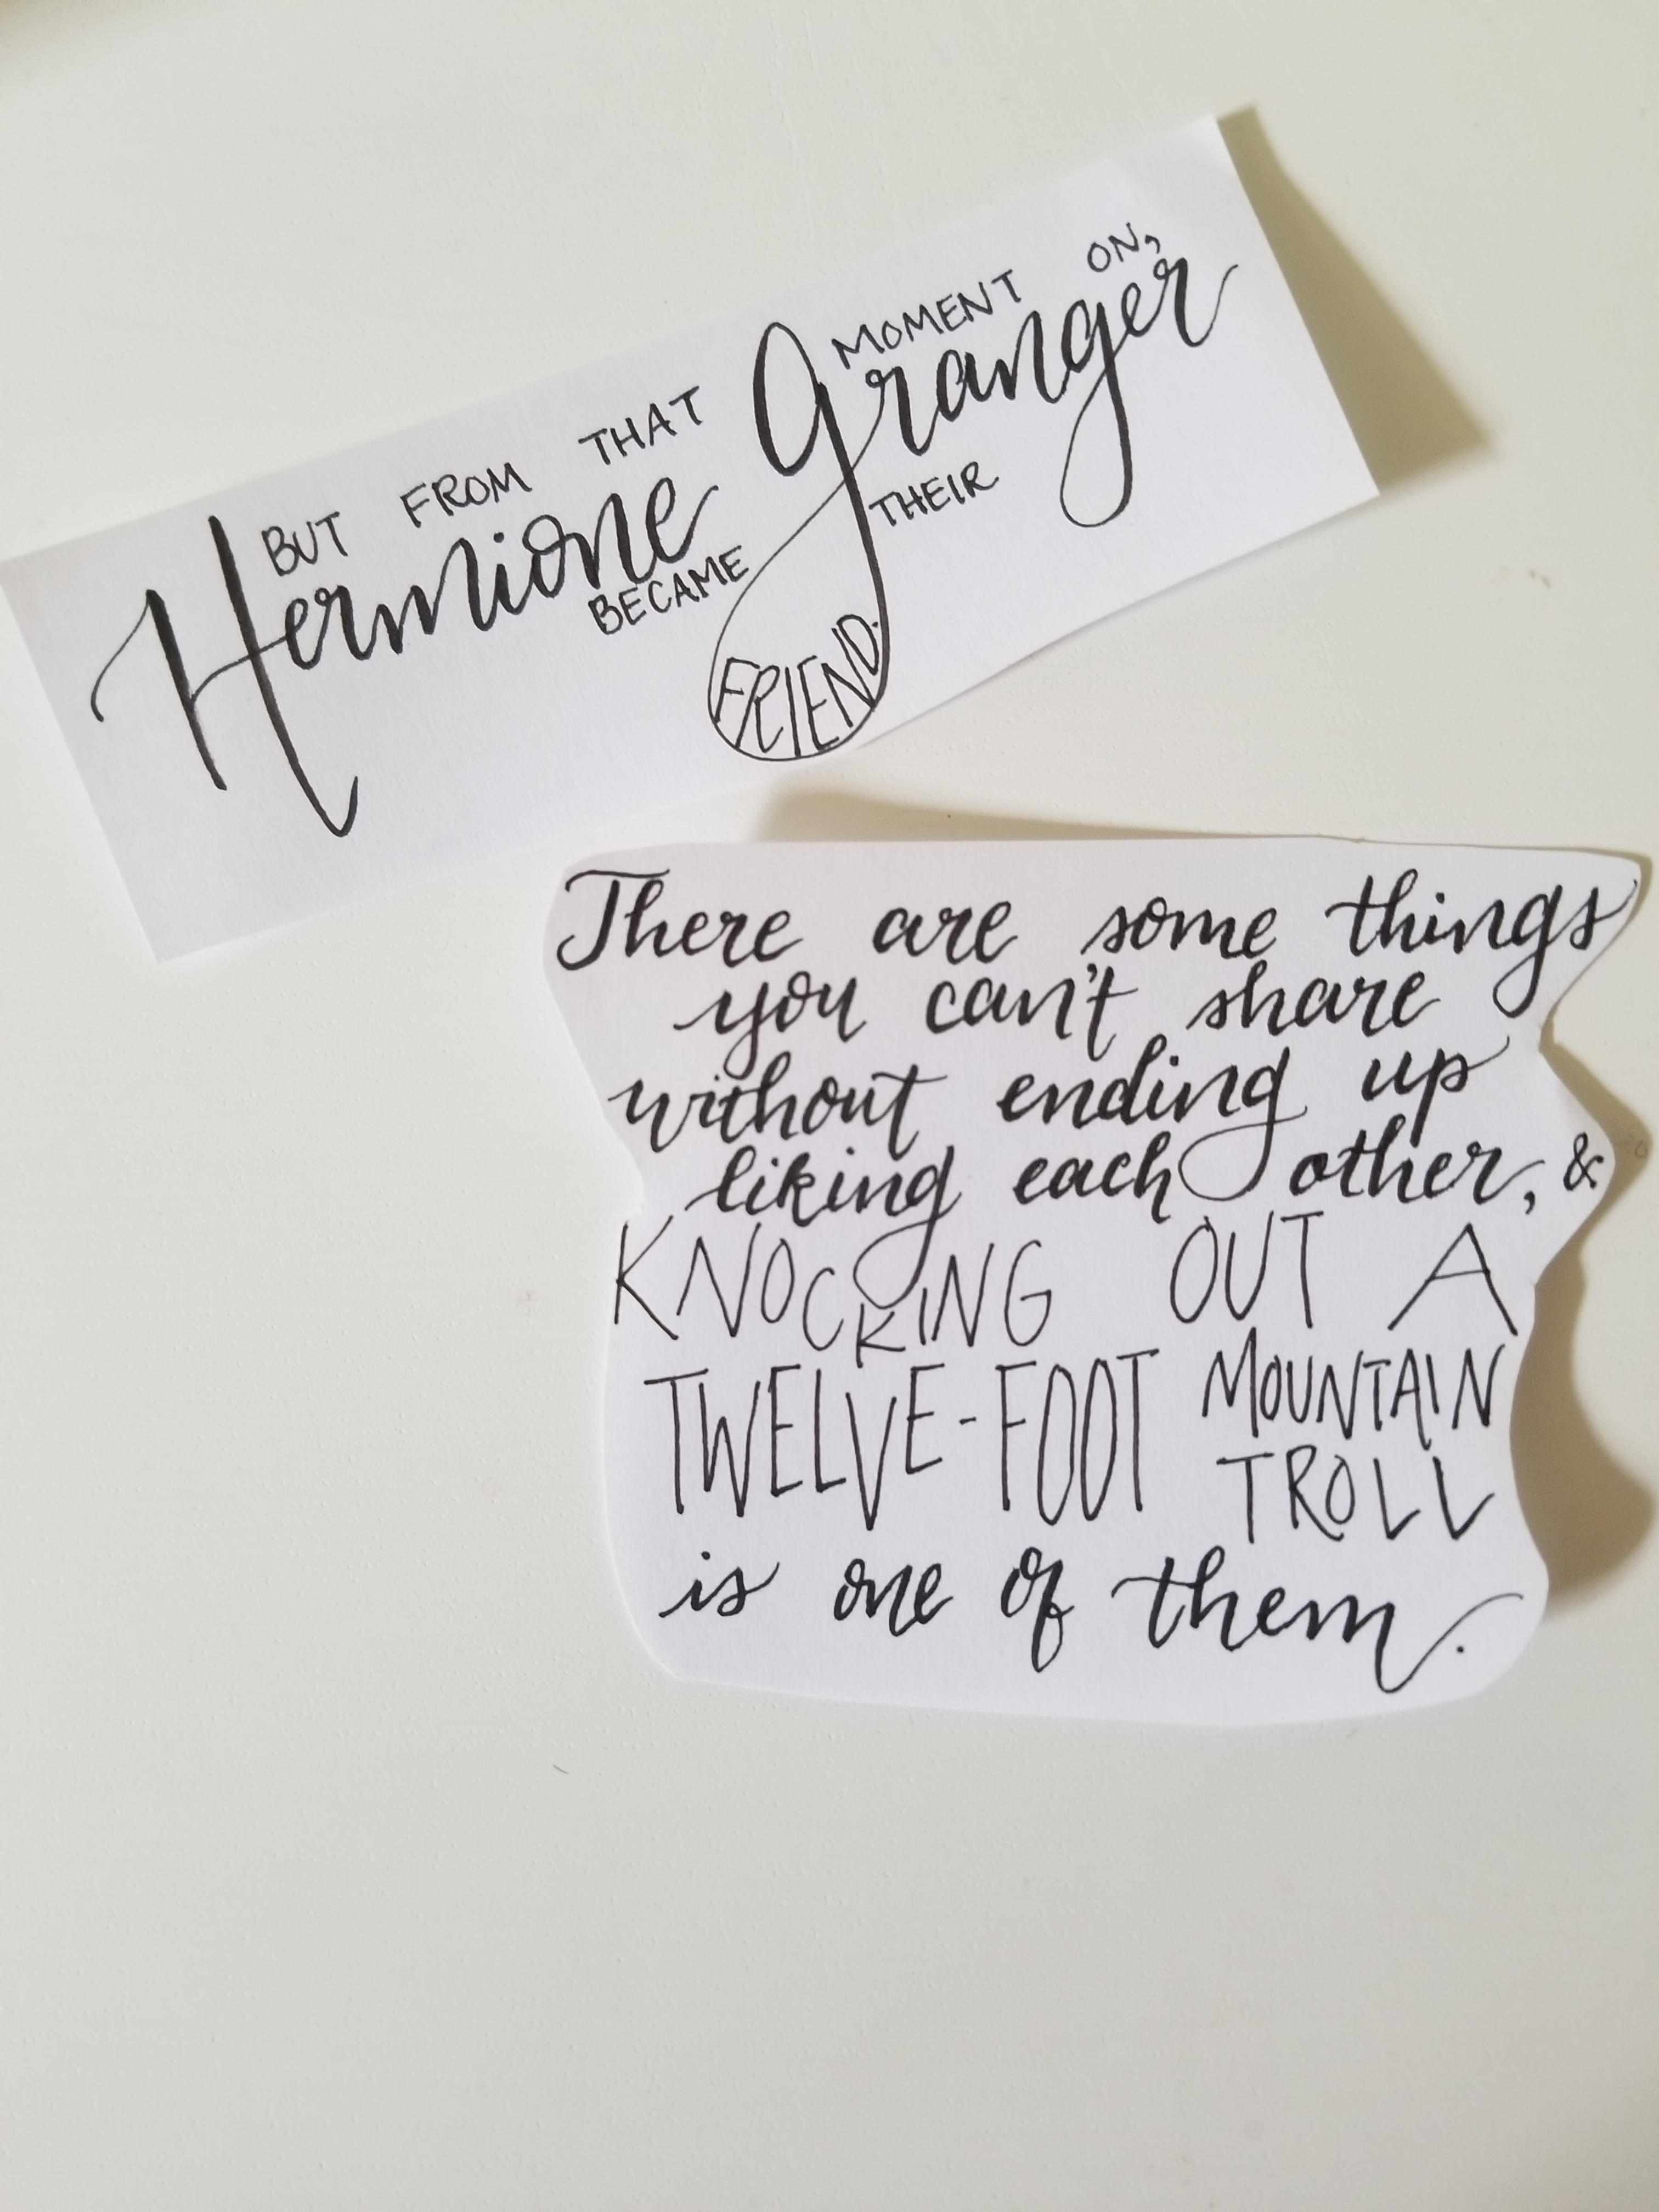 BUT FROM THAT MOMENT ON,
Hermione Granger
BECAME THEIR
FRIEND.
There are some things
you can't share
without ending up
liking each other, &
KNOCKING OUT A
TWELVE-FOOT MOUNTAIN
TROLL
is one of them.